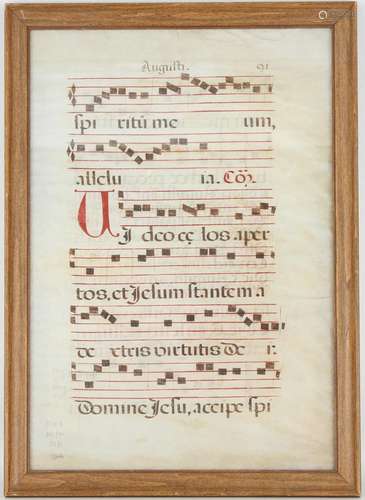 Augusti. 91
spi ritũ me um,
allelu ia. Cõ.
VI deo cę los aper
tos, et Jesum stantem a
de xtris virtutis De i.
Domine Jesu, accipe spi